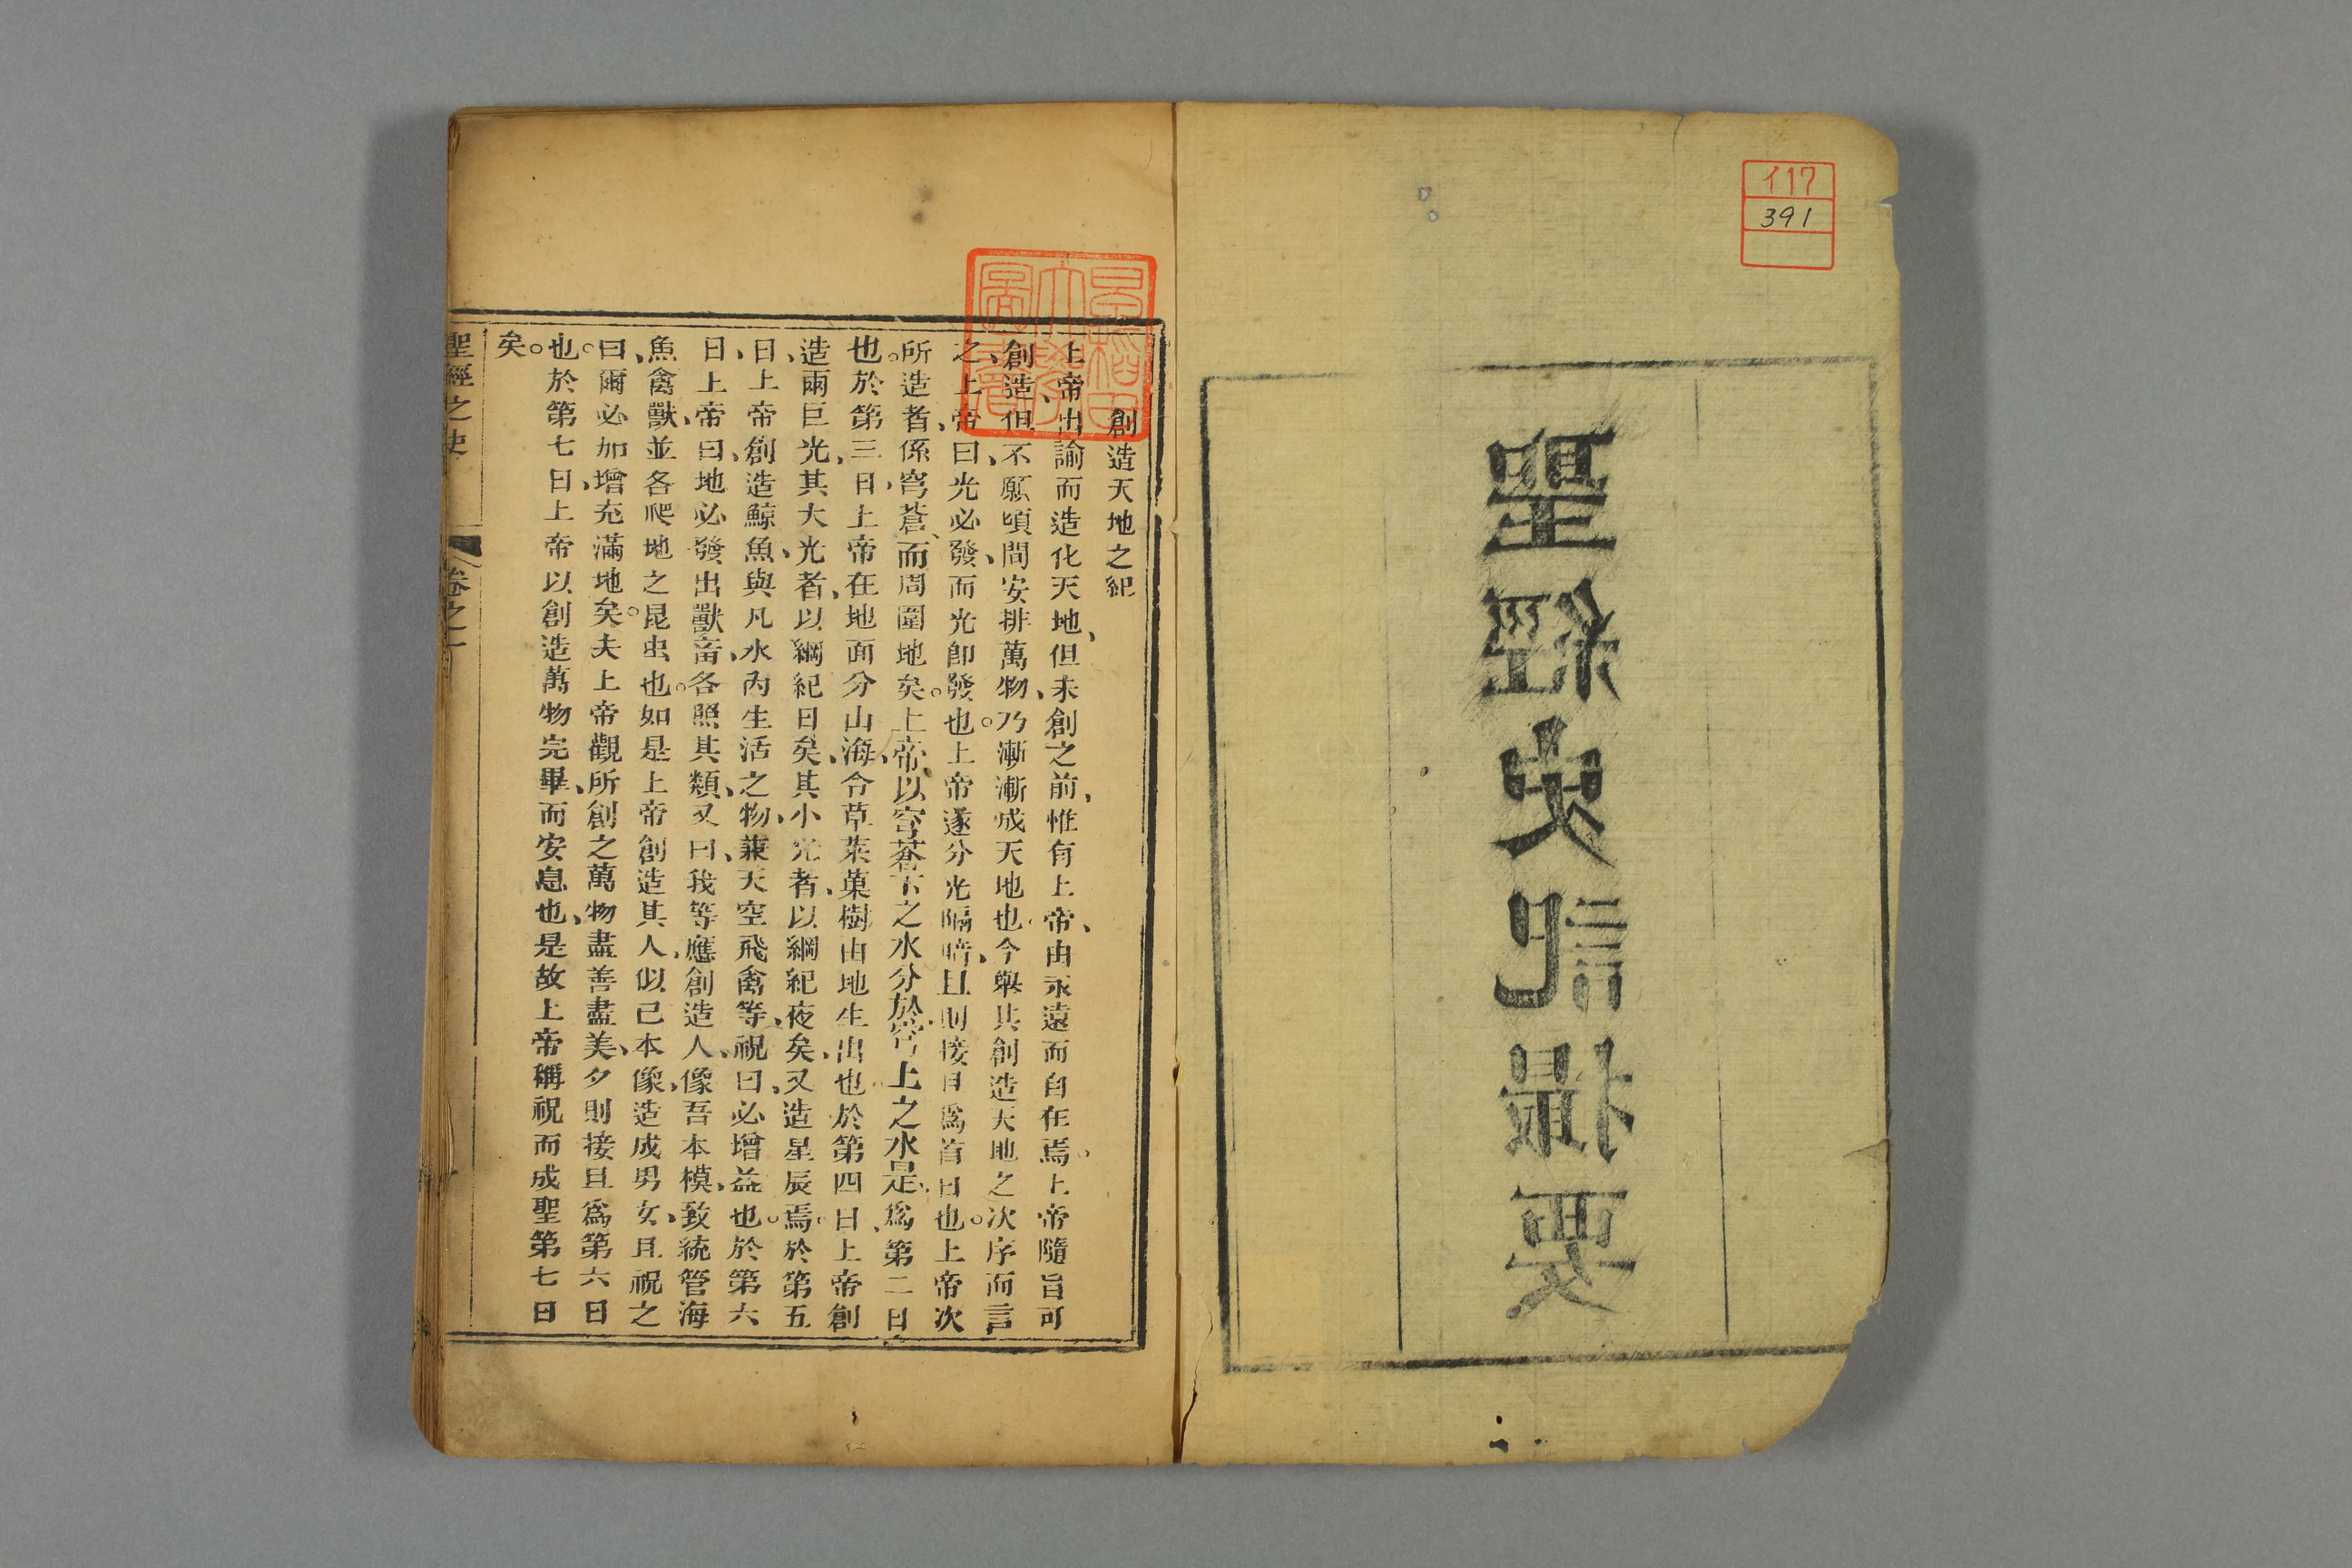 イ17
391
聖經史記撮要
早稲田大學圖書
創造天地之紀
上帝出諭而造化天地、但未創之前、惟有上帝、由永遠而自在焉。上帝隨旨可
創造、但不願頃間安排萬物、乃漸漸成天地也。今舉其創造天地之次序而言
之、上帝曰、光必發、而光卽發也。上帝遂分光隔暗、且則接旦爲首日也。上帝次
所造者、係穹蒼、而周圍地矣。上帝、以穹蒼下之水分於穹上之水、是爲第二日
也。於第三日、上帝在地面分山海、令草菜菓樹由地生出也。於第四日、上帝創
造兩巨光、其大光者、以綱紀日矣、其小光者、以綱紀夜矣、又造星辰焉。於第五
日、上帝創造鯨魚、與凡水內生活之物、兼天空飛禽等、祝曰、必增益也。於第六
日、上帝曰、地必發出獸畜、各照其類、又曰、我等應創造人、像吾本模、致統管海
魚禽獸、並各爬地之昆虫也。如是上帝創造其人、似己本像、造成男女、且祝之
曰、爾必加增、充滿地矣。夫上帝觀所創之萬物盡善盡美、夕則接旦爲第六日
也。於第七日、上帝以創造萬物完畢、而安息也、是故上帝稱祝而成聖第七日
矣。
聖經之史 卷之一